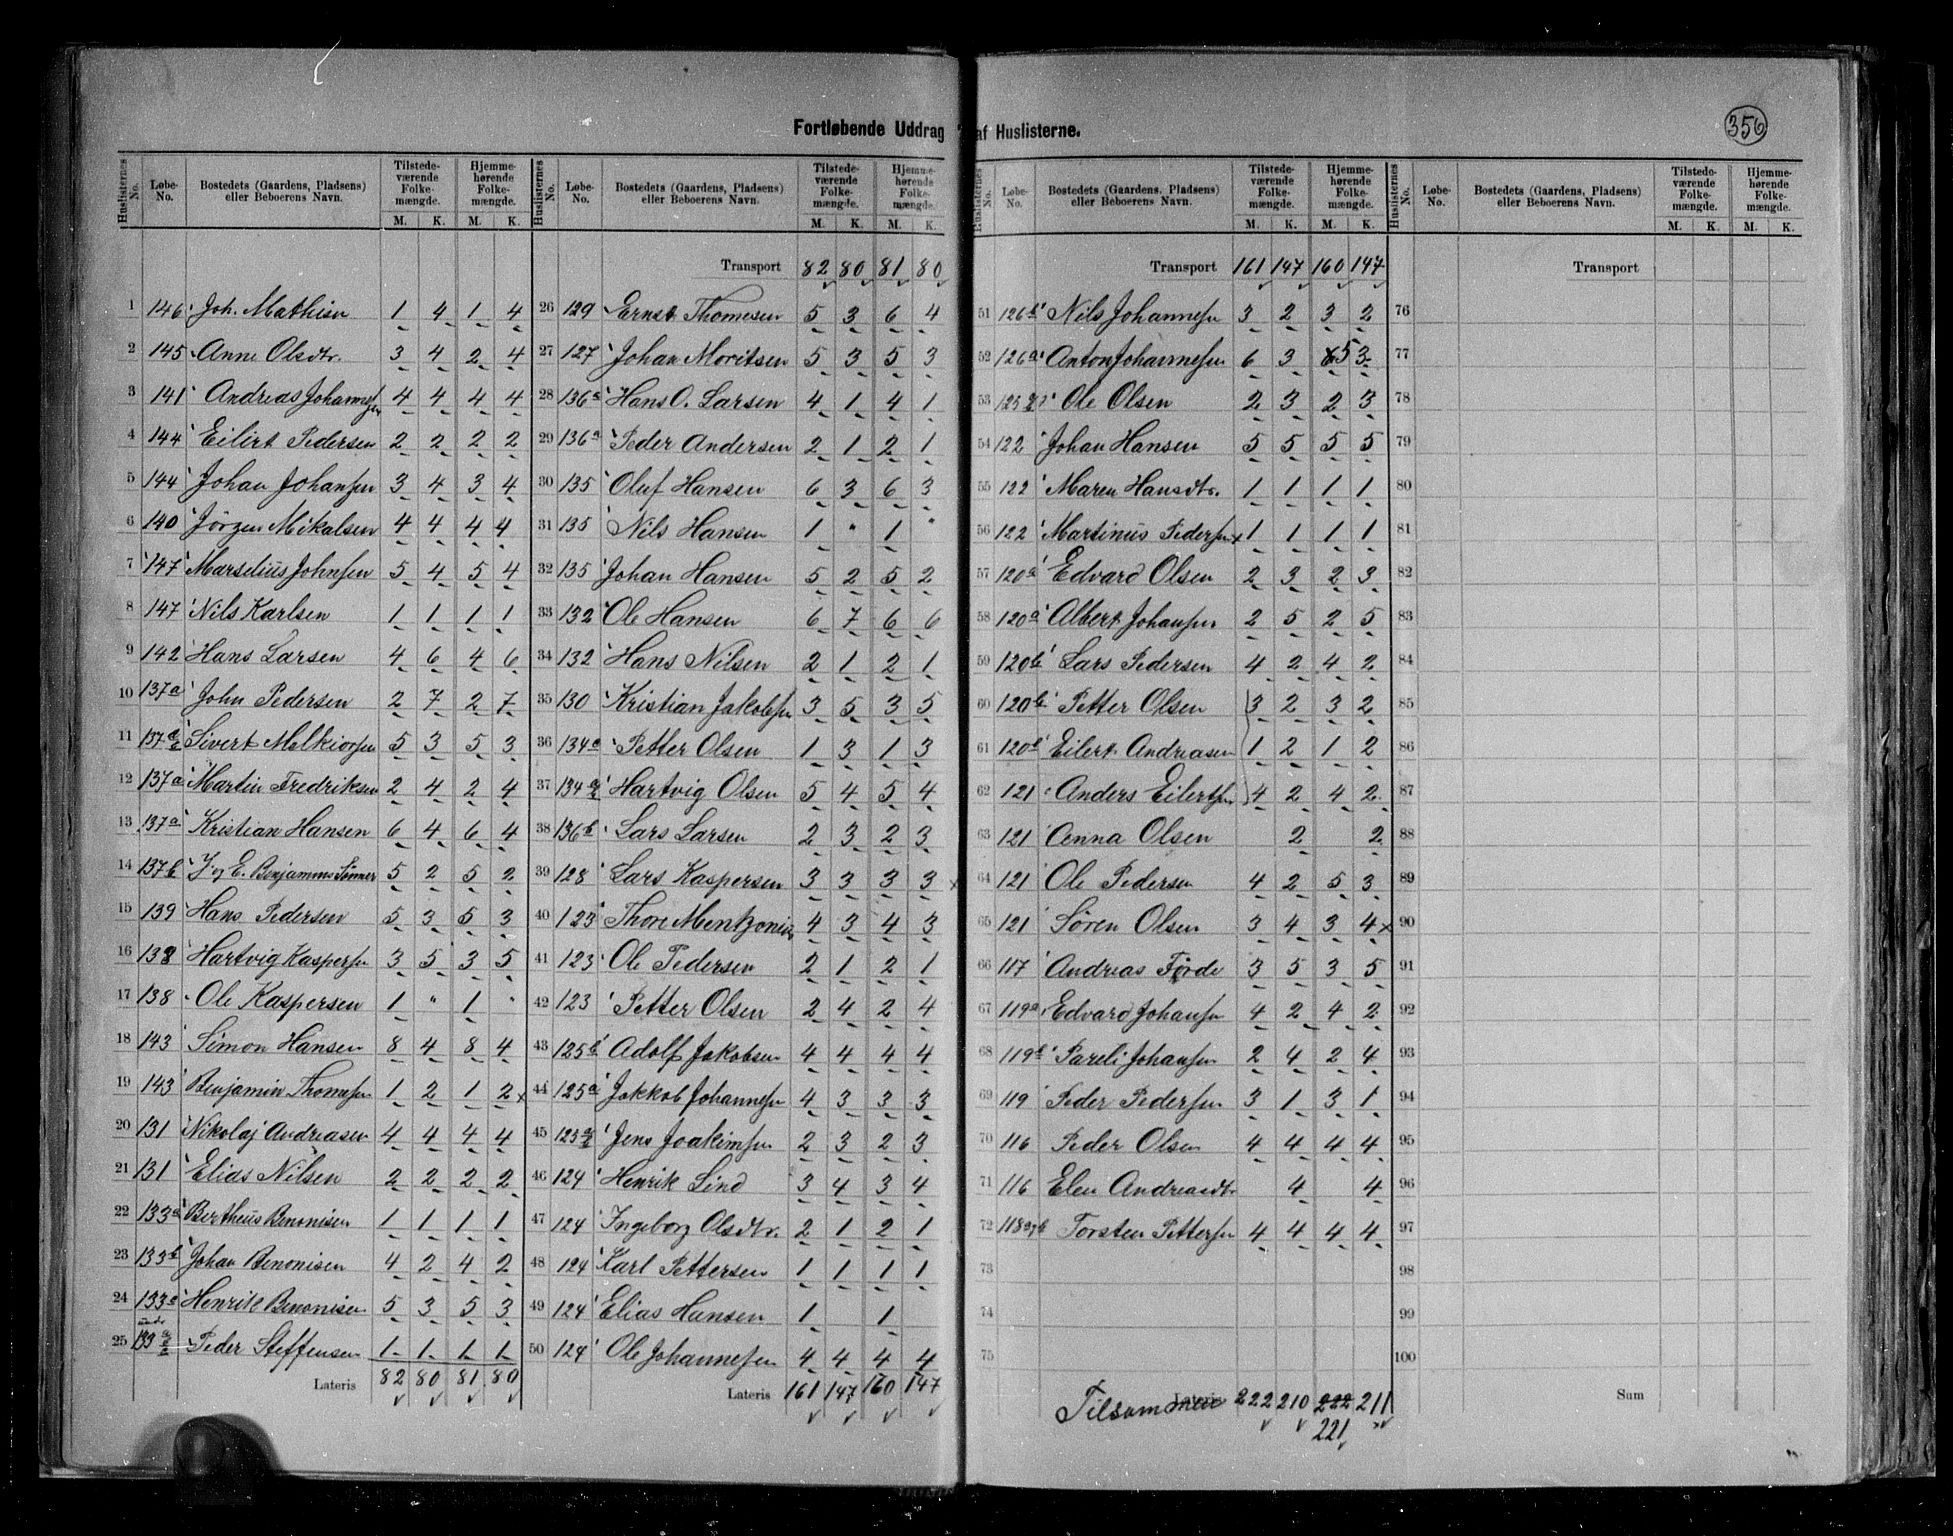 Fortløbende Uddrag af Huslisterne.
356
Huslisternes No. | Løbe-No. | Bostedets (Gaardens, Pladsens) eller Beboerens Navn. | Tilstedeværende Folkemængde. M. K. | Hjemmehørende Folkemængde. M. K.
1 146 Joh. Mathisn 1 4 1 4
2 145 Anne Olsdtr. 3 4 2 4
3 141 Andreas Johannessen 4 4 4 4
4 144 Eilirt Pedersen 2 2 2 2
5 144 Johan Johansen 3 4 3 4
6 140 Jörgen Mikalsen 4 4 4 4
7 147 Marselius Johnsen 5 4 5 4
8 147 Nils Karlsen 1 1 1 1
9 142 Hans Larsen 4 6 4 6
10 137a John Pedersen 2 7 2 7
11 137 Sivert Melkiorsen 5 3 5 3
12 137a Martin Fredriksen 2 4 2 4
13 137a Kristian Hansen 6 4 6 4
14 137b J. og E. Benjamins Sønner 5 2 5 2
15 139 Hans Pedersen 5 3 5 3
16 138 Hartvig Kaspersen 3 5 3 5
17 138 Ole Kaspersen 1 " 1 "
18 143 Simon Hansen 8 4 8 4
19 143 Benjamin Thomesen 1 2 1 2 x
20 131 Nikolaj Andreasen 4 4 4 4
21 131 Elias Nilsen 2 2 2 2
22 133a Bertheus Benonisen 1 1 1 1
23 133b Johan Benonisen 4 2 4 2
24 133a Henrik Benonisen 5 3 5 3
25 133 Peder Steffensen 1 1 1 1
Lateris 82 80 81 80
Huslisternes No. | Løbe-No. | Bostedets (Gaardens, Pladsens) eller Beboerens Navn. | Tilstedeværende Folkemængde. M. K. | Hjemmehørende Folkemængde. M. K.
Transport 82 80 81 80
26 129 Ernst Thomesen 5 3 6 4
27 127 Johan Moritsen 5 3 5 3
28 136a Hans O. Larsen 4 1 4 1
29 136a Peder Andersen 2 1 2 1
30 135 Oluf Hansen 6 3 6 3
31 135 Nils Hansen 1 " 1 "
32 135 Johan Hansen 5 2 5 2
33 132 Ole Hansen 6 7 6 6
34 132 Hans Nilsen 2 1 2 1
35 130 Kristian Jakobsen 3 5 3 5
36 134a Petter Olsen 1 3 1 3
37 134 Hartvig Olsen 5 4 5 4
38 136b Lars Larsen 2 3 2 3
39 128 Lars Kaspersen 3 3 3 3 x
40 123 Thore Mentzonius 4 3 4 3
41 123 Ole Pedersen 2 1 2 1
42 123 Petter Olsen 2 4 2 4
43 125b Adolf Jakobsen 4 4 4 4
44 125a Jakkob Johannesen 4 3 3 3
45 125 Jens Joakimsen 2 3 2 3
46 124 Henrik Lind 3 4 3 4
47 124 Ingeborg Olsdtr. 2 1 2 1
48 124 Karl Pettersen 1 1 1 1
49 124 Elias Hansen 1 1
50 124 Ole Johannesen 4 4 4 4
Lateris 161 147 160 147
Huslisternes No. | Løbe-No. | Bostedets (Gaardens, Pladsens) eller Beboerens Navn. | Tilstedeværende Folkemængde. M. K. | Hjemmehørende Folkemængde. M. K.
Transport 161 147 160 147
51 126b Nils Johannesen 3 2 3 2
52 126a Anton Johannesen 6 3 5 3
53 125 Ole Olsen 2 3 2 3
54 122 Johan Hansen 5 5 5 5
55 122 Maren Hansdtr. 1 1 1 1
56 122 Martinus Pedersen x 1 1 1 1
57 120a Edvard Olsen 2 3 2 3
58 120a Albert Johansen 2 5 2 5
59 120b Lars Pedersen 4 2 4 2
60 120b Petter Olsen 3 2 3 2
61 120b Eilert Andreasen 1 2 1 2
62 121 Anders Eilertsen 4 2 4 2
63 121 Anna Olsen 2 2
64 121 Ole Pedersen 4 2 5 3
65 121 Søren Olsen 3 4 3 4 x
66 117 Andreas Förde 3 5 3 5
67 119a Edvard Johansen 4 2 4 2
68 119b Pareli Johansen 2 4 2 4
69 119 Peder Pedersen 3 1 3 1
70 116 Peder Olsen 4 4 4 4
71 116 Elen Andreasdtr 4 4
72 118 Torsten Pettersen 4 4 4 4
73
74
75
Tilsammen Lateris 222 210 222 211
221
Huslisternes No. | Løbe-No. | Bostedets (Gaardens, Pladsens) eller Beboerens Navn. | Tilstedeværende Folkemængde. M. K. | Hjemmehørende Folkemængde. M. K.
Transport
76
77
78
79
80
81
82
83
84
85
86
87
88
89
90
91
92
93
94
95
96
97
98
99
100
Sum